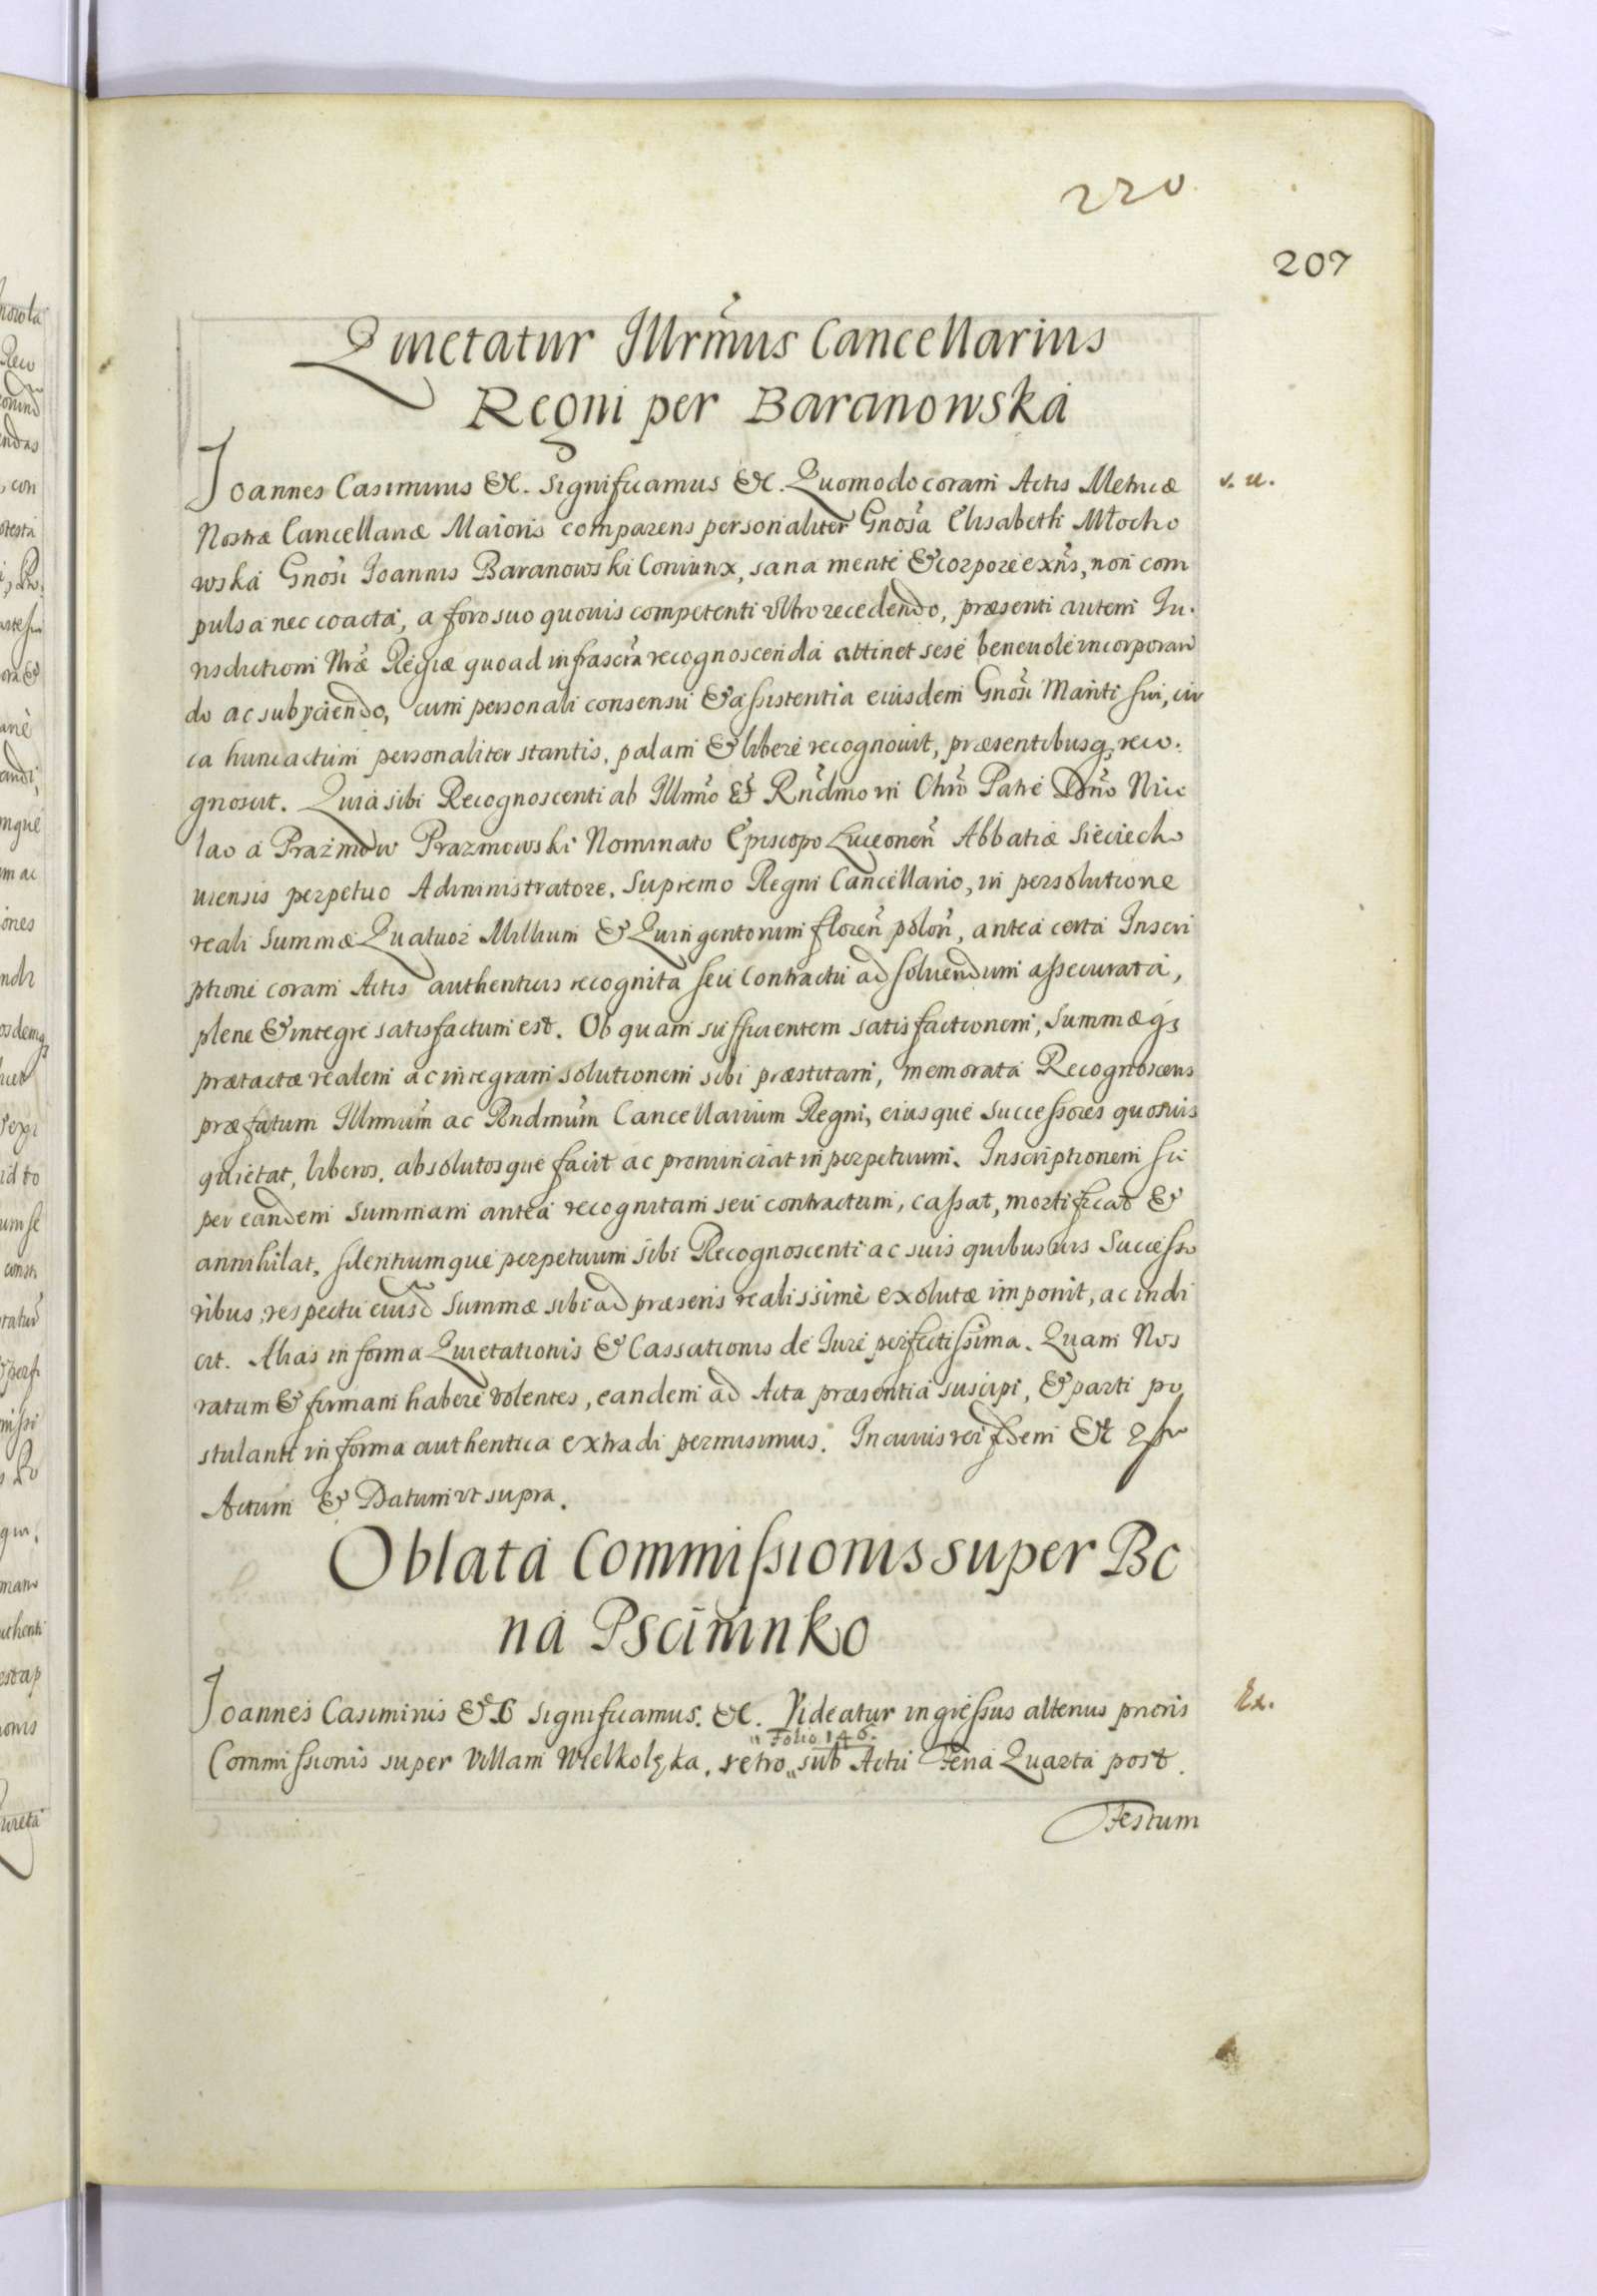 220
207
Quietatur Illr̃mus Cancellarius
Regni per Baranowska
Joannes Casimirus &c. Significamus &c. Quomodo coram Actis Metricæ
v. u.
Nostræ Cancellariæ Maioris comparens personaliter Gnos̃a Elisabeth Młocho
wska Gnos̃i Joannis Baranowski Coniunx, sana mente & corpore exñs, non com
pulsa nec coacta, a foro suo quouis competenti vltro recedendo, præsenti autem Iu.
risdictioni Nr̃æ Regiæ quoad infrascr̃a recognoscenda attinet sese beneuole incorporan
do ac subyciendo, cum personali consensu & assistentia eiusdem Gnos̃i Mariti sui, cir
ca hunc actum personaliter stantis, palam & libere recognouit, præsentibusq; reco.
gnoscit. Quia sibi Recognoscenti ab Illmõ & Rñdmo in Chrõ Patre Dnõ Nico
lao a Prażmow Prazmowski Nominato Episcopo Luceoneñ Abbatiæ Sieciecho
uiensis perpetuo Administratore. Supremo Regni Cancellario, in persolutione
reali Summæ Quatuor Millium & Quingentorum floreñ poloñ, antea certa Inscri
ptione coram Actis authenticis recognita seu Contractu ad soluendum assecurata,
plene & integre satisfactum est. Ob quam sufficientem satisfactionem, Summæq;
prætactæ realem ac integram solutionem sibi præstitam, memorata Recognoscens
præfatum Illmum̃ ac Rndmum̃ Cancellarium Regni, eiusque Successores quosuis
quietat, liberos, absolutosque facit ac pronunciat in perpetuum. Inscriptionem su
per eandem Summam antea recognitam seu contractum, cassat, mortificat &
annihilat, silentiumque perpetuum sibi Recognoscenti ac suis quibusuis Successo
ribus, respectu eiusd̃ Summæ sibi ad præsens realissimè exolutæ imponit, ac indi
cit. Alias in forma Quietationis & Cassationis de Iure perfectissima. Quam Nos
ratum & firmam habere volentes, eandem ad Acta præsentia suscipi, & parti po
stulanti in forma authentica extradi permisimus. In cuius rei fidem &c
Actum & Datum vt supra.
Oblata Commissionis super Bo
na Psciminko
Joannes Casimirus &c Significamus. &c. Videatur ingressus alterius prioris
Ex.
" Folio 146.
Commissionis super Villam Wielkolęka. retro " sub Actu Feria Quarta post.
Festum